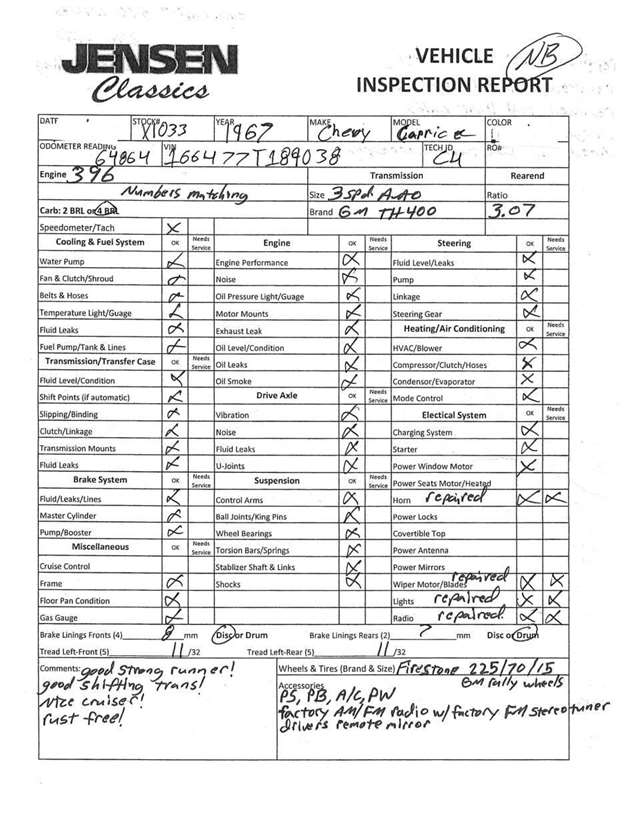 JENSEN
Classics
VEHICLE
INSPECTION REPORT
NB
DATE STOCK# X1033 YEAR 1967 MAKE Chevy MODEL Caprice COLOR
ODOMETER READING 64864 VIN 166477T189038 TECH ID C4 RO#
Engine 396 Transmission Rearend
Numbers matching Size 3 spd Auto Ratio
Carb: 2 BRL or 4 BRL Brand GM TH400 3.07
Speedometer/Tach X
Cooling & Fuel System OK Needs Service Engine OK Needs Service Steering OK Needs Service
Water Pump X Engine Performance X Fluid Level/Leaks X
Fan & Clutch/Shroud X Noise X Pump X
Belts & Hoses X Oil Pressure Light/Guage X Linkage X
Temperature Light/Guage X Motor Mounts X Steering Gear X
Fluid Leaks X Exhaust Leak X Heating/Air Conditioning OK Needs Service
Fuel Pump/Tank & Lines X Oil Level/Condition X HVAC/Blower X
Transmission/Transfer Case OK Needs Service Oil Leaks X Compressor/Clutch/Hoses X
Fluid Level/Condition X Oil Smoke X Condensor/Evaporator X
Shift Points (if automatic) X Drive Axle OK Needs Service Mode Control X
Slipping/Binding X Vibration X Electical System OK Needs Service
Clutch/Linkage X Noise X Charging System X
Transmission Mounts X Fluid Leaks X Starter X
Fluid Leaks X U-Joints X Power Window Motor X
Brake System OK Needs Service Suspension OK Needs Service Power Seats Motor/Heated
Fluid/Leaks/Lines X Control Arms X Horn repaired X X
Master Cylinder X Ball Joints/King Pins X Power Locks
Pump/Booster X Wheel Bearings X Covertible Top
Miscellaneous OK Needs Service Torsion Bars/Springs X Power Antenna
Cruise Control Stablizer Shaft & Links X Power Mirrors
Frame X Shocks X Wiper Motor/Blades repaired X X
Floor Pan Condition X Lights repaired X X
Gas Gauge X Radio repaired. X X
Brake Linings Fronts (4) 8 mm Disc or Drum Brake Linings Rears (2) ? mm Disc or Drum
Tread Left-Front (5) 11 /32 Tread Left-Rear (5) 11 /32
Comments: good strong runner! Wheels & Tires (Brand & Size) Firestone 225/70/15
good shifting trans! GM rally wheels
Nice cruiser!
rust free!
Accessories
PS, PB, A/C, PW
factory AM/FM radio w/factory FM stereo tuner
drivers remote mirror